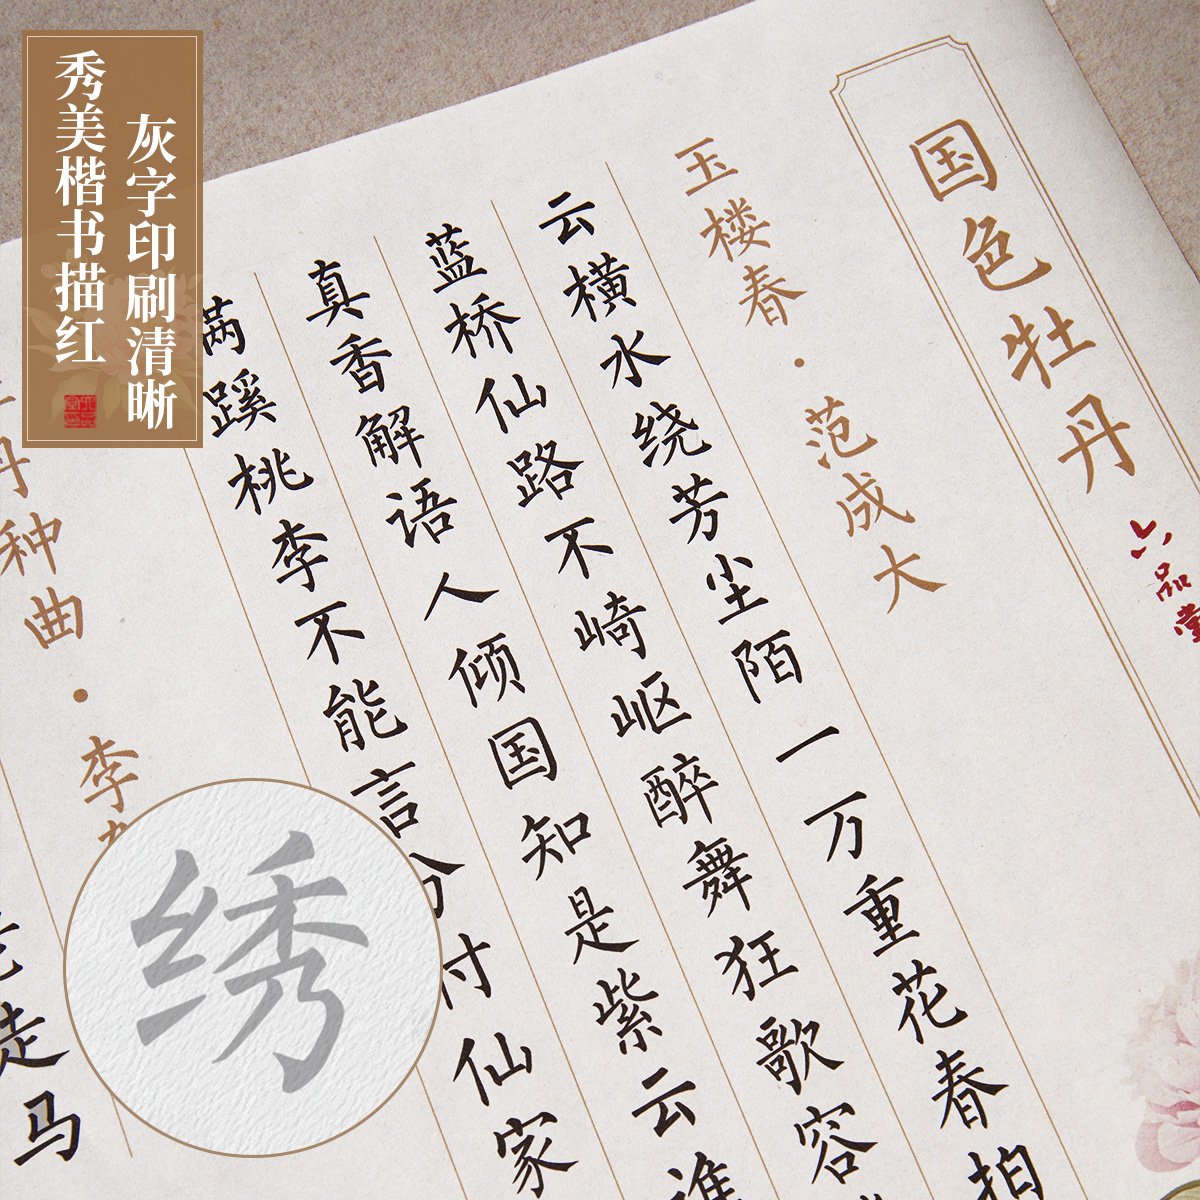 秀美楷书描红
灰字印刷清晰
国色牡丹
六品堂
玉楼春·范成大
云横水绕芳尘陌一万重花春拍
蓝桥仙路不崎岖醉舞狂歌容
真香解语人倾国知是紫云谁
满蹊桃李不能言分付仙家
丹种曲·李
走马
绣